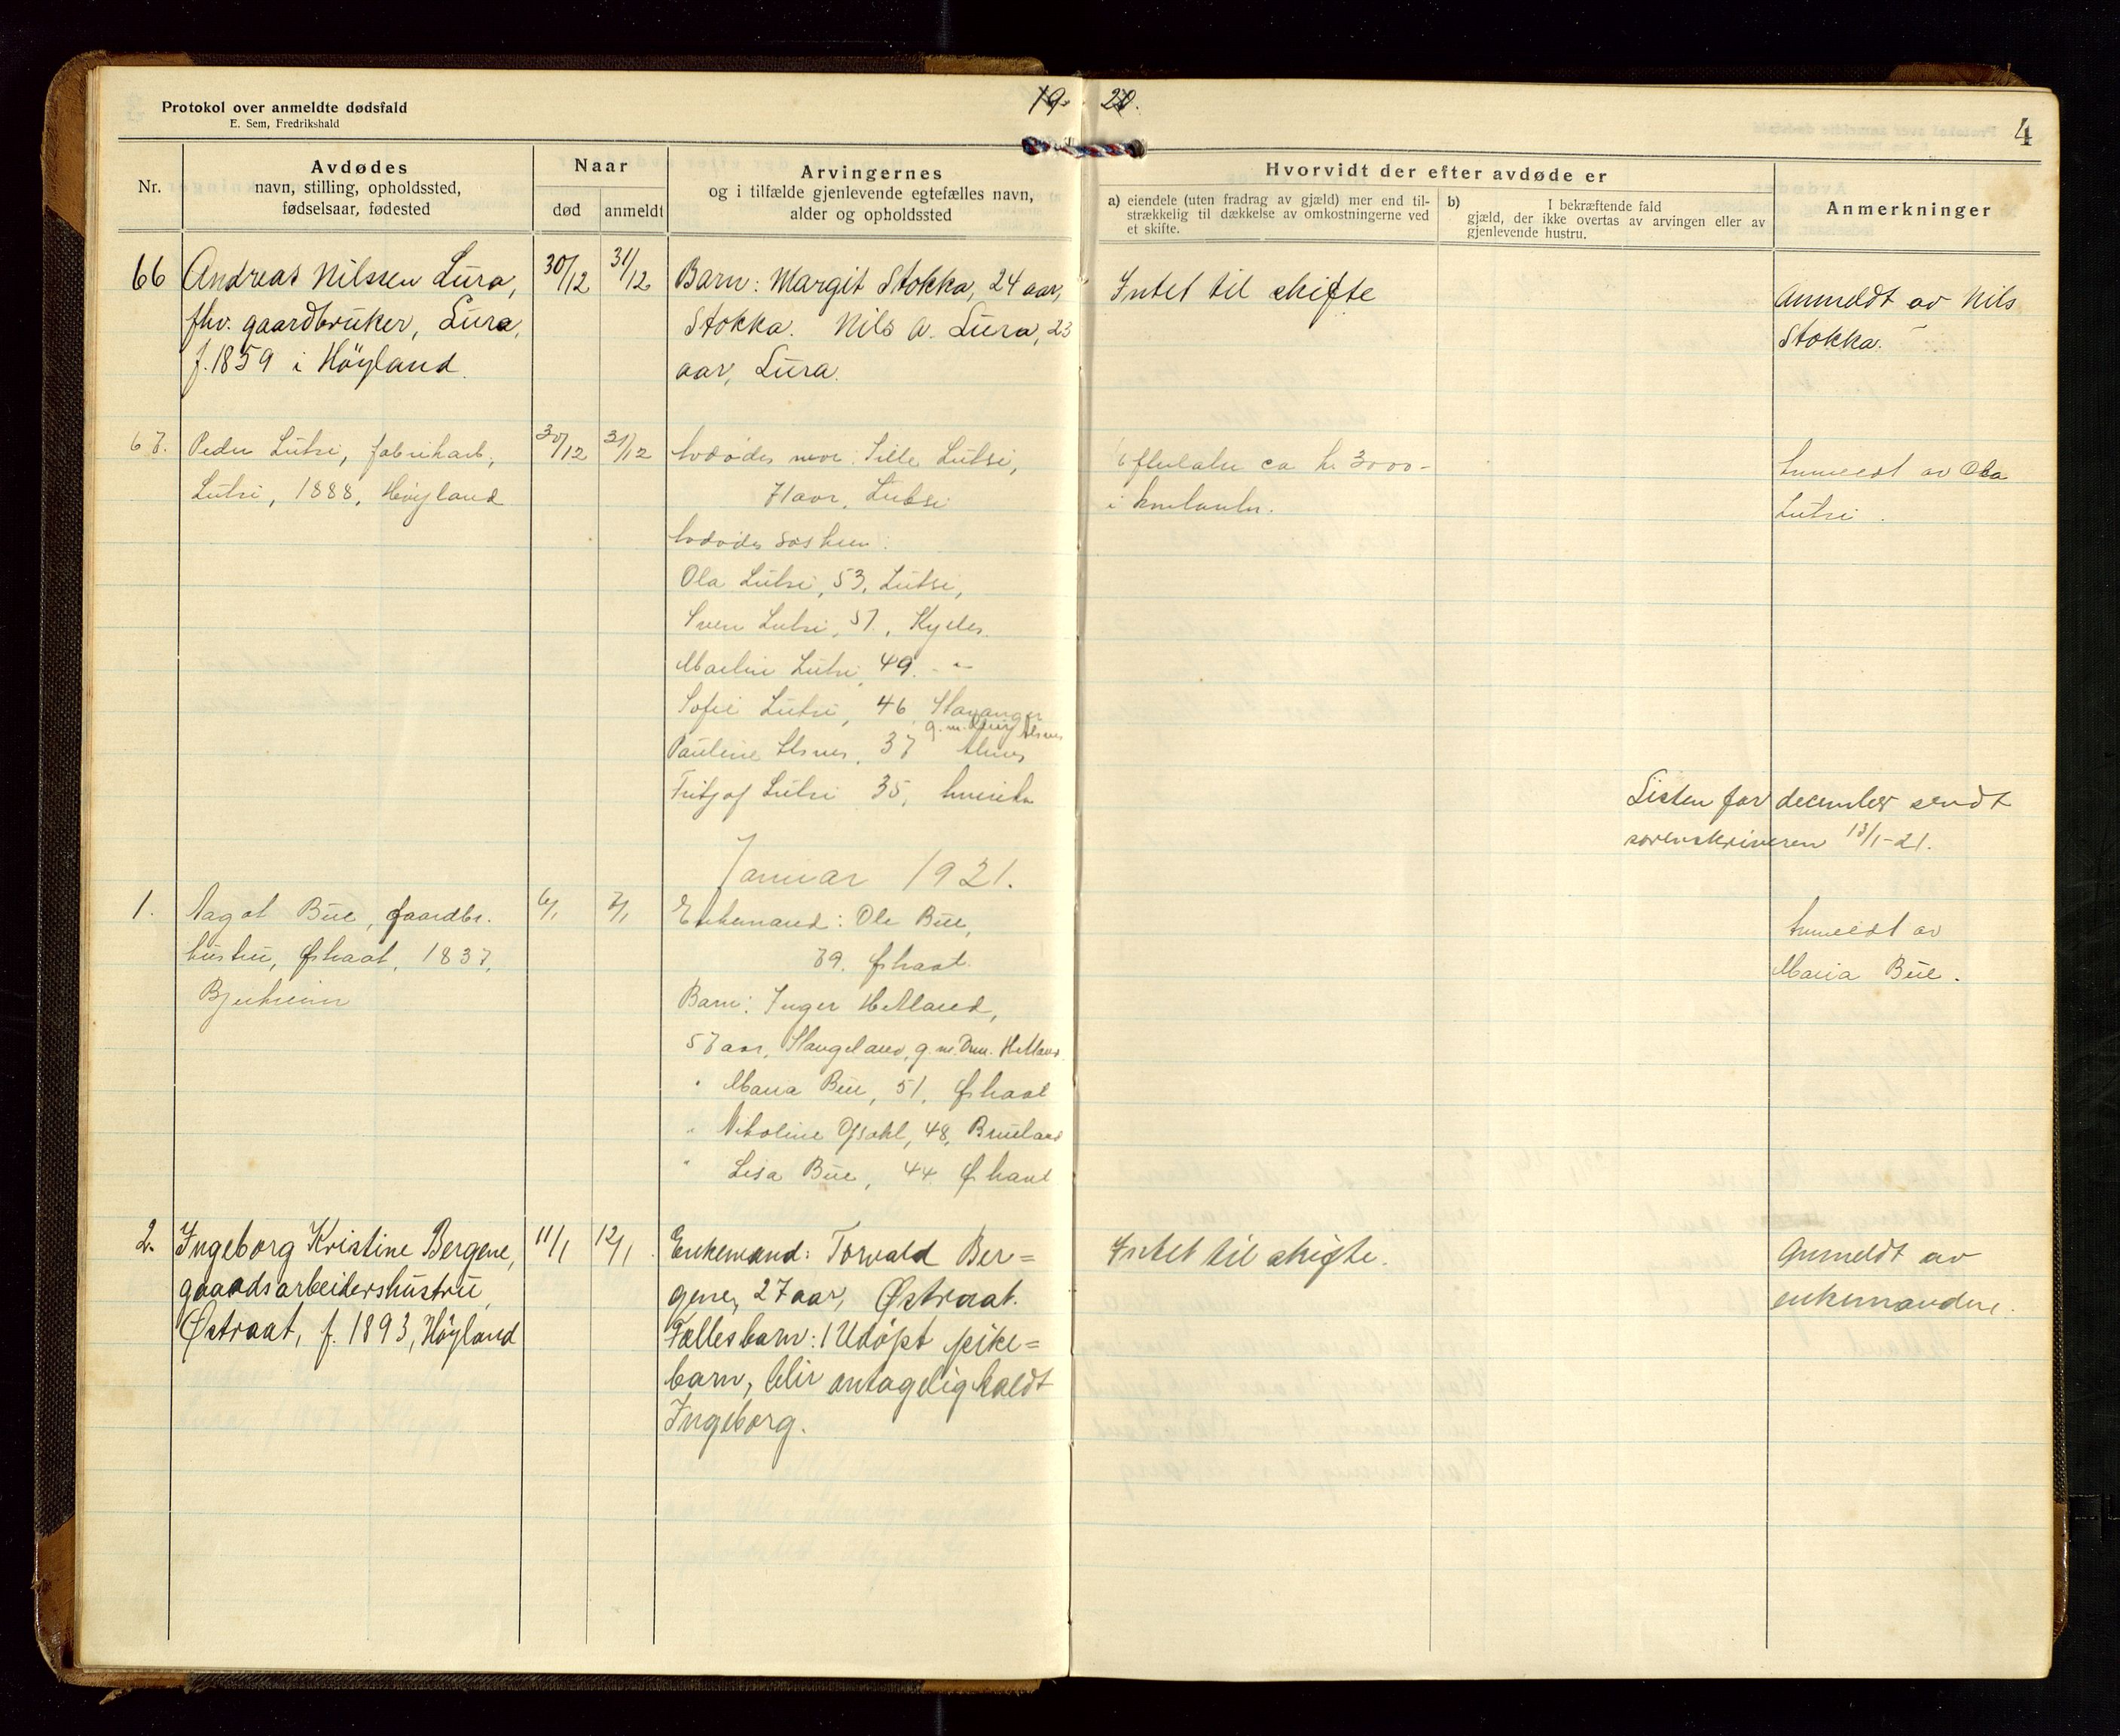 Protokol over anmeldte dødsfald
E. Sem, Fredrikshald
19 20.
4
Nr.
Avdødes
navn, stilling, opholdssted,
fødselsaar, fødested
Naar
død
anmeldt
Arvingernes
og i tilfælde gjenlevende egtefælles navn,
alder og opholdssted
Hvorvidt der efter avdøde er
a) eiendele (uten fradrag av gjæld) mer end til-
strækkelig til dækkelse av omkostningerne ved
et skifte.
b) I bekræftende fald
gjæld, der ikke overtas av arvingen eller av
gjenlevende hustru.
Anmerkninger
66
Andreas Nilssen Lura,
fhv. gaardbruker, Lura,
f. 1859 i Höyland.
30/12
31/12
Barn: Margit Stokka, 24 aar,
Stokka. Nils A. Lura, 23
aar, Lura.
Intet til skifte
Anmeldt av Nils
Stokka.
67.
Peder Lutsi, fabrikarb.,
Lutsi, 1888, Høyland
30/12
31/12
Avdødes mor: Sille Lutsi,
71 aar, Lutsi
Avdødes søsken:
Ola Lutsi, 53, Lutsi,
Sven Lutsi, 51,
Lutsi, 49. - " -
Sofie Lutsi, 46, Stavanger
g. m.
Pauline 37
Fritjof Lutsi 35,
ca kr 3000-
i
Anmeldt av Ola
Lutsi.
Listen for december sendt
sorenskriveren 13/1-21.
Januar 1921.
1.
Bue, gaardbr.
hustru, Østraat, 1837,
Bjerkreim
6/1
7/1
Enkemand: Ole Bue,
79. Østraat.
Barn: Inger Hetland,
57 aar, Stangeland, g. m. Hetland
" Maria Bue, 51, Østraat
" Nikoline 48, Brueland
" Lisa Bue, 44. Østraat
Anmeldt av
Maria Bue.
2.
Ingeborg Kristine Bergene,
gaardsarbeidershustru,
Østraat, f. 1893, Höyland
11/1
12/1
Enkemand: Torvald Ber=
gene, 27 aar, Østraat.
Fællesbarn: 1 Udöpt pike=
barn, blir antagelig kaldt
Ingeborg.
Intet til skifte.
Anmeldt av
enkemanden.